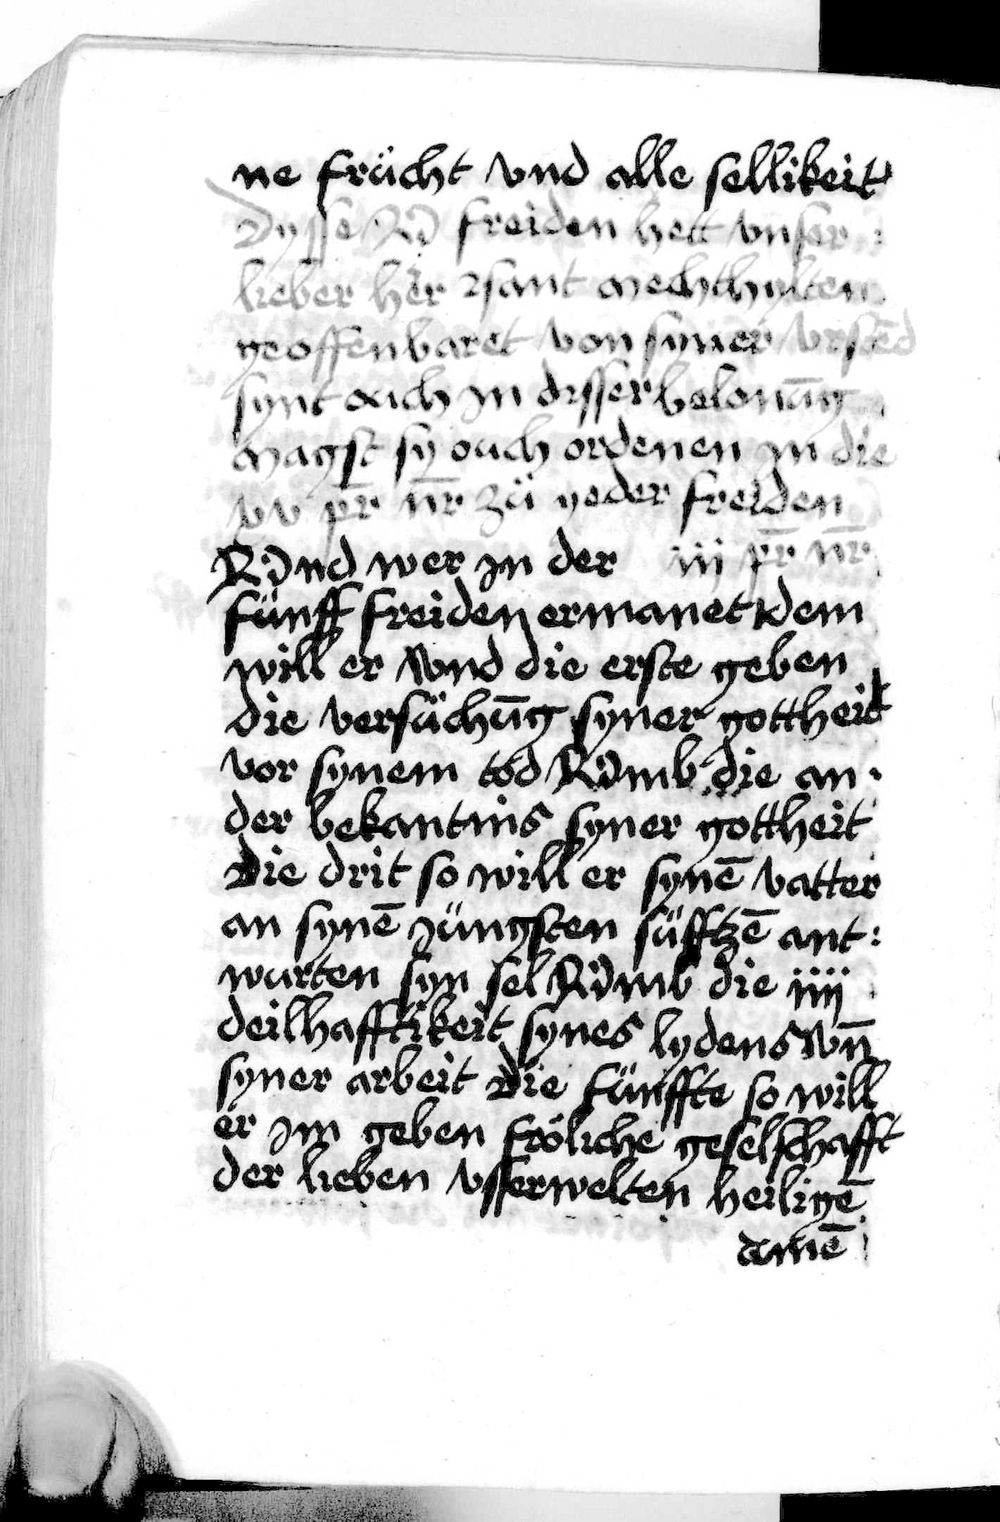 ne frücht vnd alle sellikeit
Dysse v freiden hett vnser
lieber her sant mechthylten
geoffenbaret von syner vrstēd
synt ouch jn disser belonūg
magst sy ouch ordenen jn die
vv pr̄ nr̄ zü yeder freiden
Vnd wer jn der iij pr̄ nr̄
fünff freiden ermanet dem
will er vmb die erste geben
die versüchūg syner gottheit
vor synem tód Vmb die an
der bekantnis syner gottheit
Die drit so will er synē vatter
an synē jüngsten süfftzē ant
wurten syn sel Vmb die iiij
deilhafftikeit synes lydens vn̄
syner arbeit Die fünffte so will
er jm geben fröliche geselschafft
der lieben vsserwelten heiligē
amē